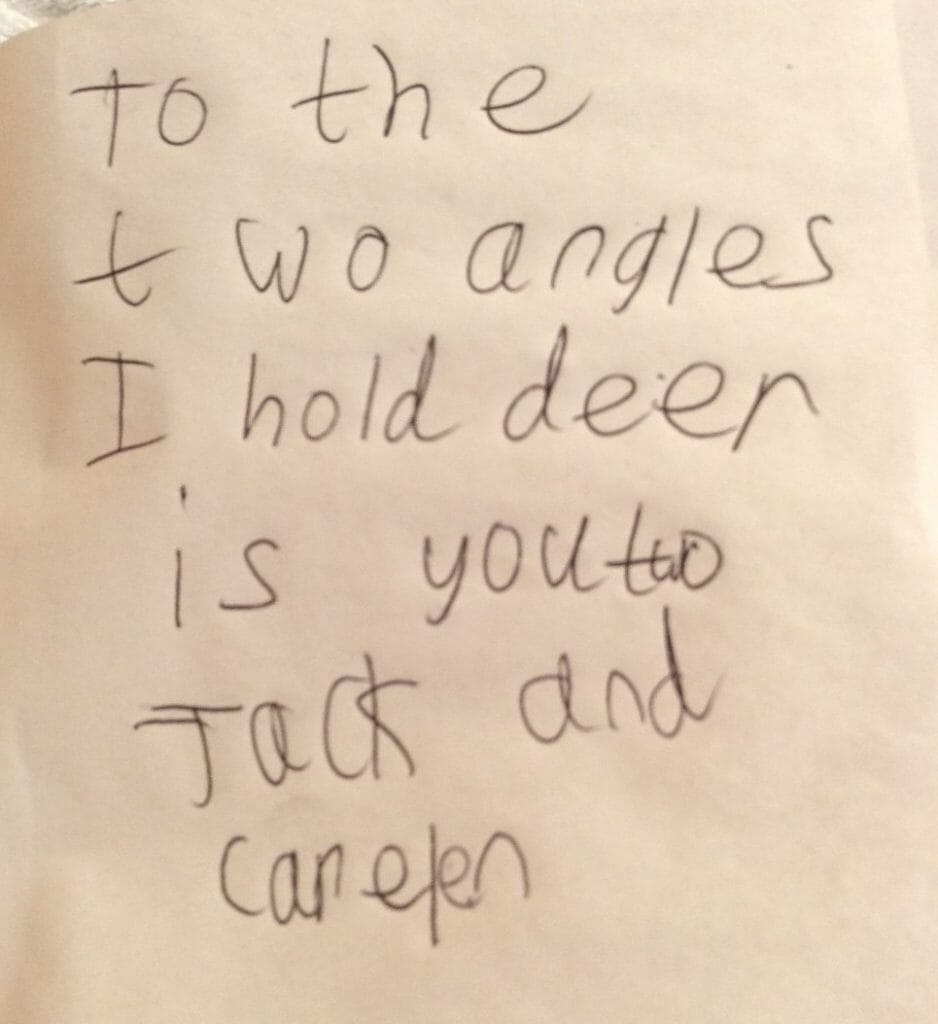 To the
two angles
I hold deer
is you two
Jack and